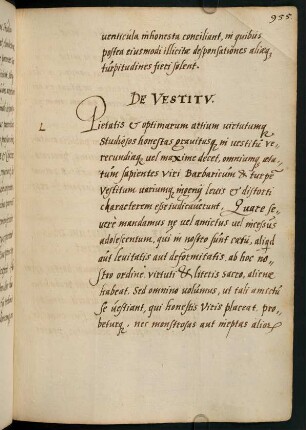 955.
uenticula inhonesta conciliant, in quibus
postea eiusmodi illicitæ desponsationes aliæq
turpitudines fieri solent.
DE VESTITV.
L Pietatis & optimarum artium uirtutumq
studiosos honestas grauitasq, in uestitu ue-
recundiaq uel maxime decet, omniumq æta-
tum sapientes uiri Barbaricum & turpem
Vestitum uariumq, ingenij leuis & distorti
characterem esse iudicauerunt, Quare se-
uerè mandamus ne uel amictus uel incessus
adolescentum, qui in nostro sunt cætu, aliqd
aut leuitatis aut deformitatis, ab hoc no-
stro ordine uirtuti & literis sacro, alienũ
habeat. Sed omnino uolumus, ut tali amictu
se uestiant, qui honestis Viris placeat pro-
beturq: nec monstrosas aut ineptas alior